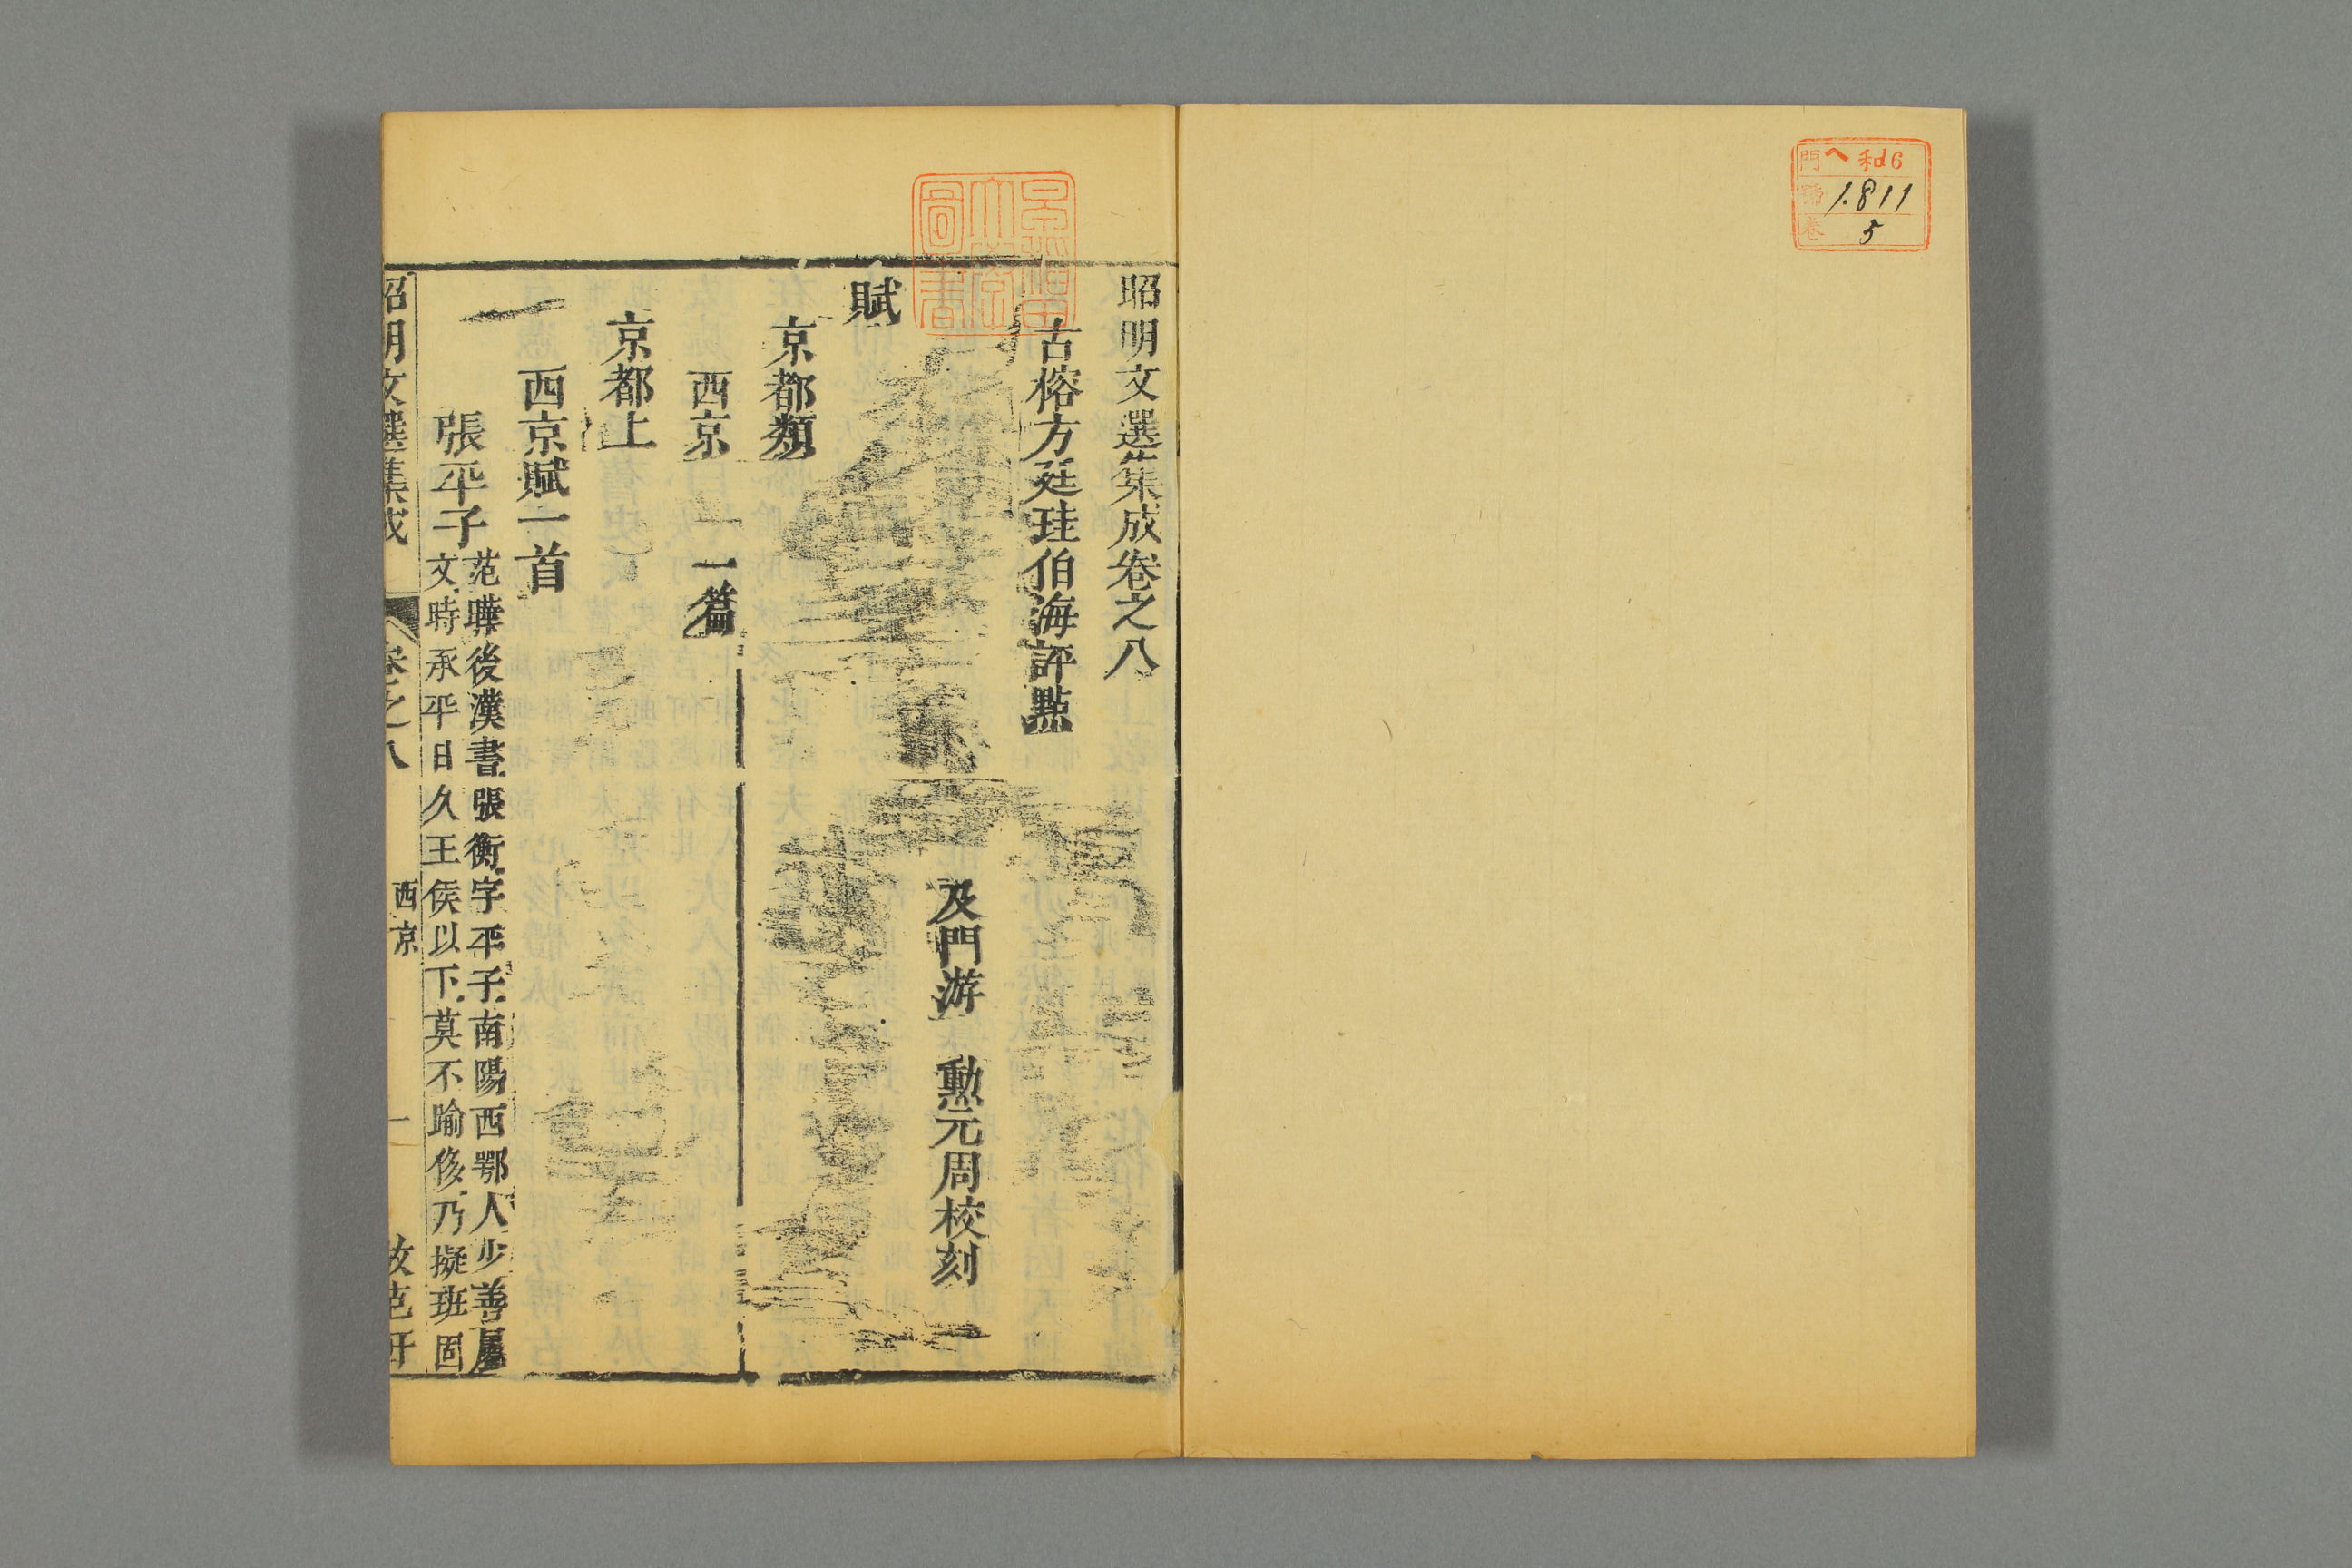 門 ヘ和d6
號 1.811
卷 5
昭明文選集成卷之八
古榕方廷珪伯海評點
及門游 勳元周校刻
賦
京都類
西京 一篇
京都上
西京賦一首
張平子
范曄後漢書張衡字平子南陽西鄂人少善屬
文時承平日久王侯以下莫不踰侈乃擬班固
昭明文選集成 卷之八 西京 一
早稻田大學圖書